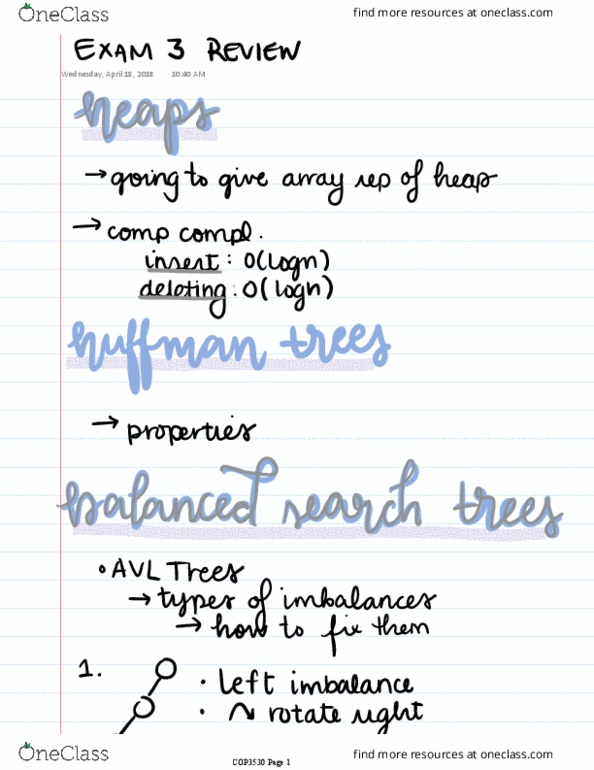 OneClass
find more resources at oneclass.com
EXAM 3 REVIEW
Wednesday, April 18, 2018 10:40 AM
heaps
→ going to give array rep of heap
→ comp compl.
insert: O(logn)
deleting: O(logn)
huffman trees
→ properties
balanced search trees
• AVL Trees
→ types of imbalances
→ how to fix them
1.
• left imbalance
• ↷ rotate right
OneClass
COP3530 Page 1
find more resources at oneclass.com